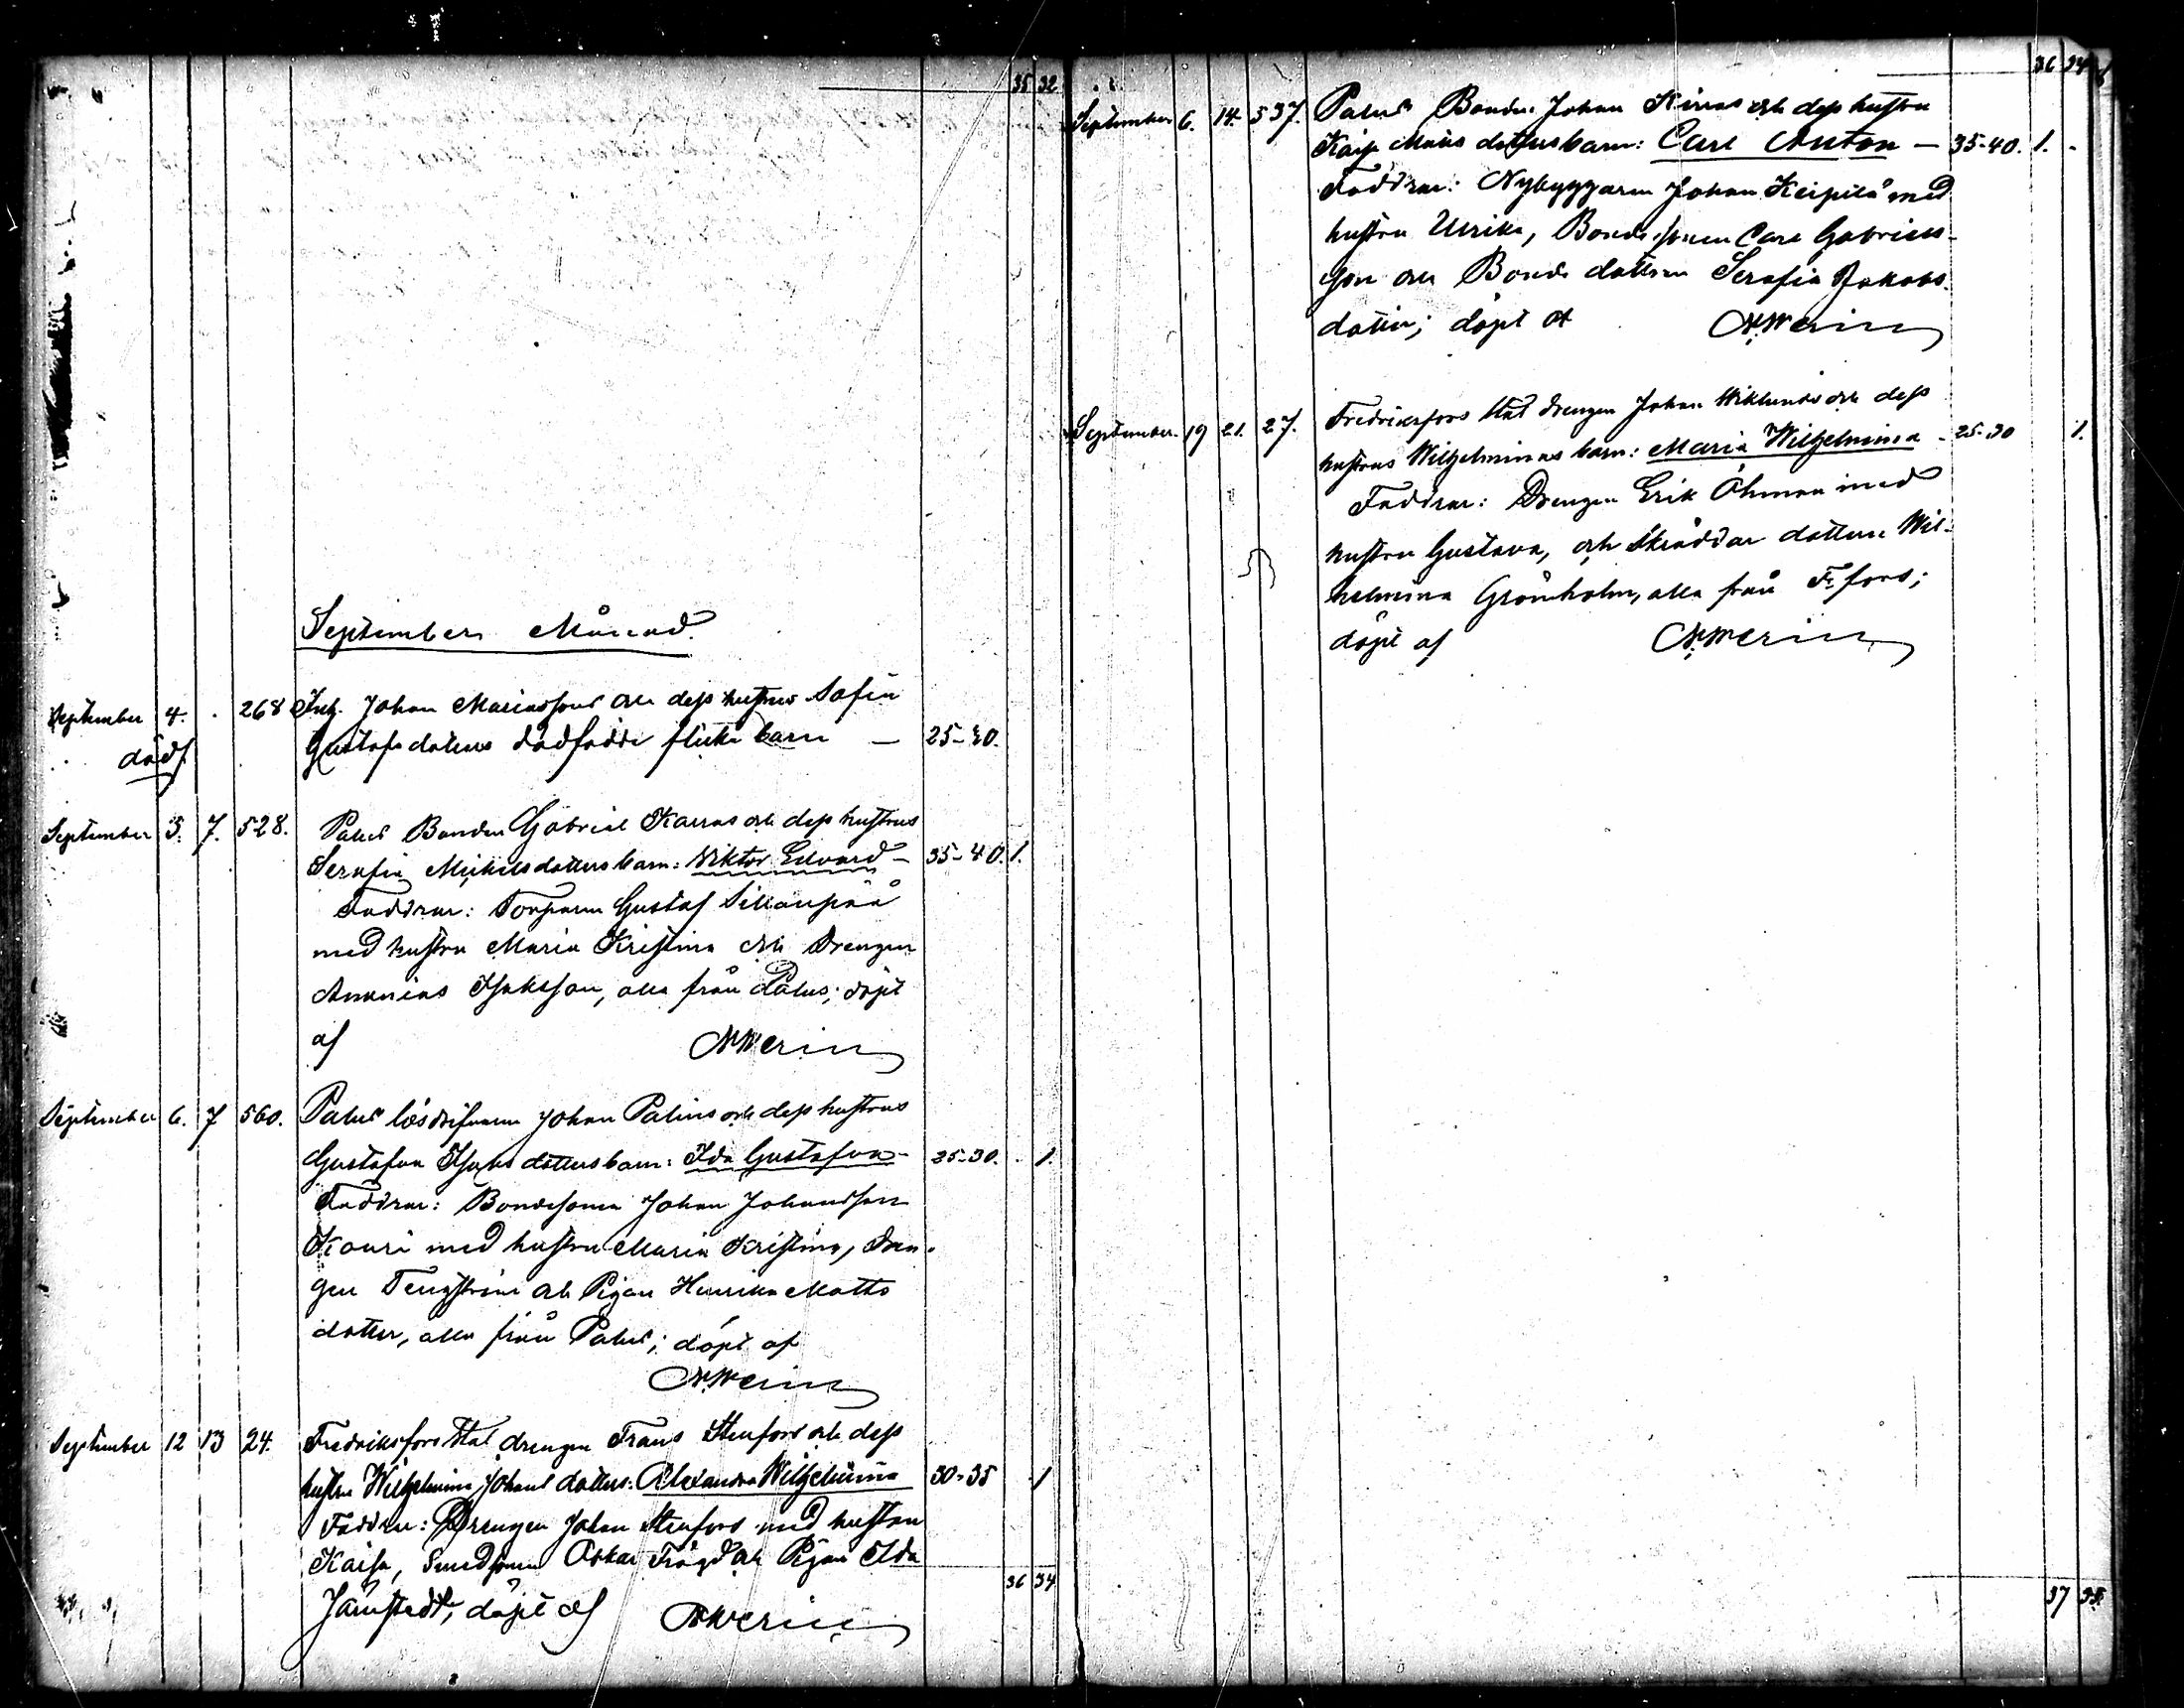 35 32
September Månad.
September 4. . 268 Inh. Johan Mariassons och dess hustrus Sofia
dödf. Gustafsdotters dödfödde flicke barn — 25-30.
September 5. 7. 528. Palus Bonden Gabriel Karras och dess hustrus
Serafia Mickelsdotters barn: Viktor Edvard — 35-40. 1.
Faddrar: Torparen Gustaf Sillanpää
med hustru Maria Kristina och Drengen
Ananias Isaksson, alla från Palus; döpt
af
September 6. 7 560. Palus lösdrifvaren Johan Palins och dess hustrus
Gustafva Isaksdotters barn: Ida Gustafva — 25-30. . 1.
Faddrar: Bondesonen Johan Johansson
Kouri med hustru Maria Kristina, Dren-
gen Tengström och Pigan Henrika Matts
dotter, alla från Palus; döpt af
September 12 13 24. Fredriksfors Stat drengen Frans Stenfors och dess
hustru Wilhelmina Johans dotters: Alexandra Wilhelmina 30-35 1
Faddrar: Drengen Johan Stenfors med hustru
Kaisa, Smedsonen Oskar Frögd och Pigan Ida
Jämstedt, döpt af
36 34
36 34
September 6. 14. 537. Palus Bonden Johan och dess hustru
Kajsa Matts dotters barn: Carl Anton — 35-40. 1. .
Faddrar: Nybyggaren Johan Keipilä med
hustru Ulrika, Bonde sonen Carl Gabriels-
son och Bonde dottren Serafia Jakobs-
dotter; döpt af
September 19 21. 27. Fredriksfors Stat drengen Johan Wiklunds och dess
hustrus Wilhelminas barn: Maria Wilhelmina - 25-30 1.
Faddrar: Drengen Erik Öhman med
hustru Gustava, och Skräddar dottern Wil-
helmina Grönholm, alla från F. fors;
döpt af
37 35